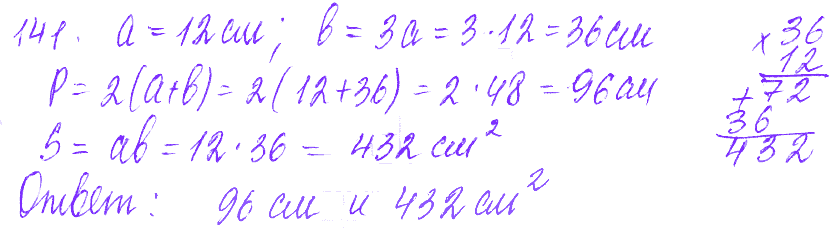 141. a = 12 см; b = 3a = 3 · 12 = 36 см
P = 2(a+b) = 2(12+36) = 2 · 48 = 96 см
S = ab = 12 · 36 = 432 см²
Ответ: 96 см и 432 см²
× 36
12
+ 72
36
432